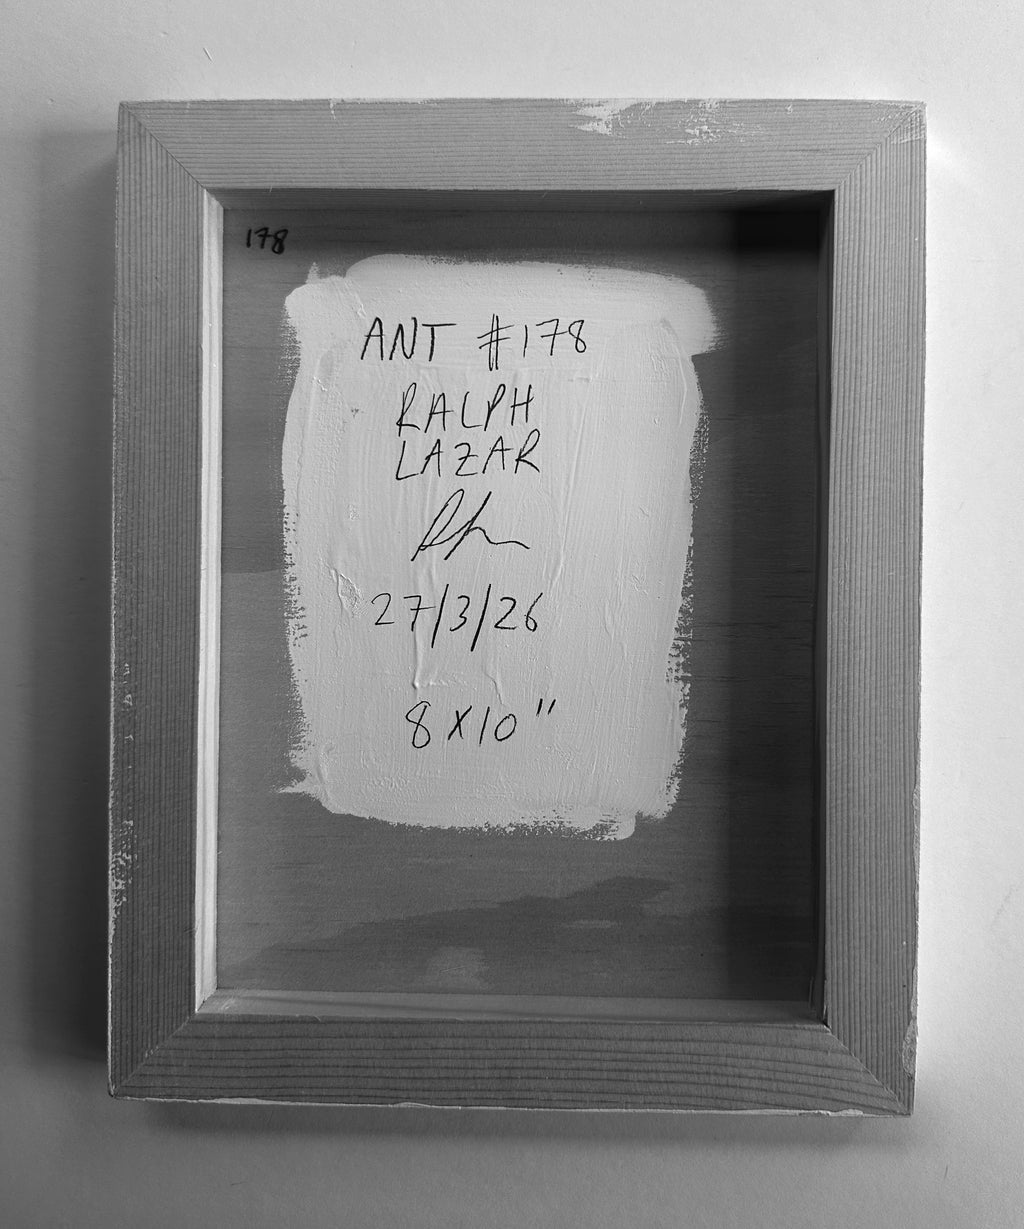 178
ANT #178
RALPH
LAZAR
27/3/26
8 X 10"